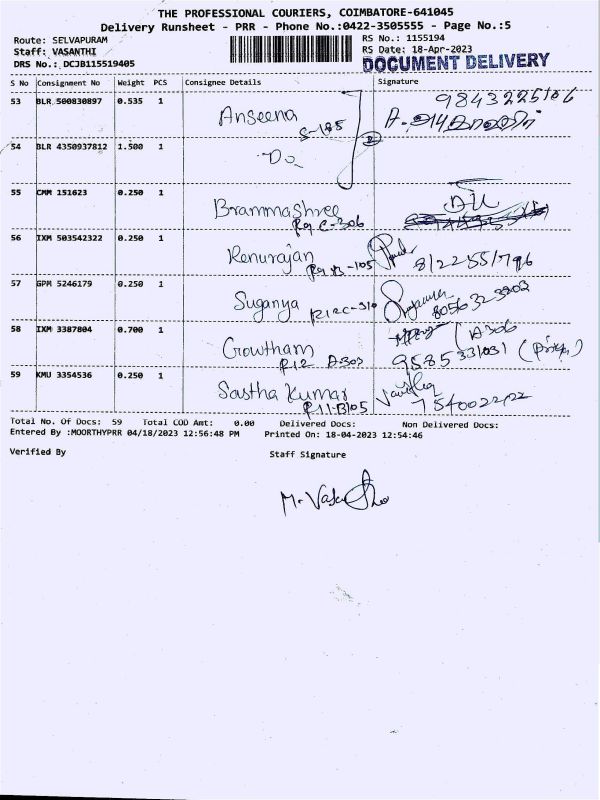 THE PROFESSIONAL COURIERS, COIMBATORE-641045
Delivery Runsheet - PRR - Phone No.:0422-3505555 - Page No.:5
Route: SELVAPURAM
RS No.: 1155194
Staff: VASANTHI
RS Date: 18-Apr-2023
DRS No.: DCJB115519405
DOCUMENT DELIVERY
S No Consignment No Weight PCS Consignee Details Signature
53 BLR 500830897 0.535 1 Anseena 9843225106
S-185
54 BLR 4350937812 1.500 1 Do
55 CMM 151623 0.250 1 Brammashree
C-306
56 IXM 503542322 0.250 1 Renurajan
B-105 8122551796
57 GPM 5246179 0.250 1 Suganya R12C-310 Suganya 8056323903
58 IXM 3387804 0.700 1 Gowtham A306
R12 A-303 9585331031
59 KMU 3354536 0.250 1 Sastha Kumar
R11-B105
Total No. Of Docs: 59 Total COD Amt: 0.00 Delivered Docs: Non Delivered Docs:
Entered By :MOORTHYPRR 04/18/2023 12:56:48 PM Printed On: 18-04-2023 12:54:46
Verified By Staff Signature